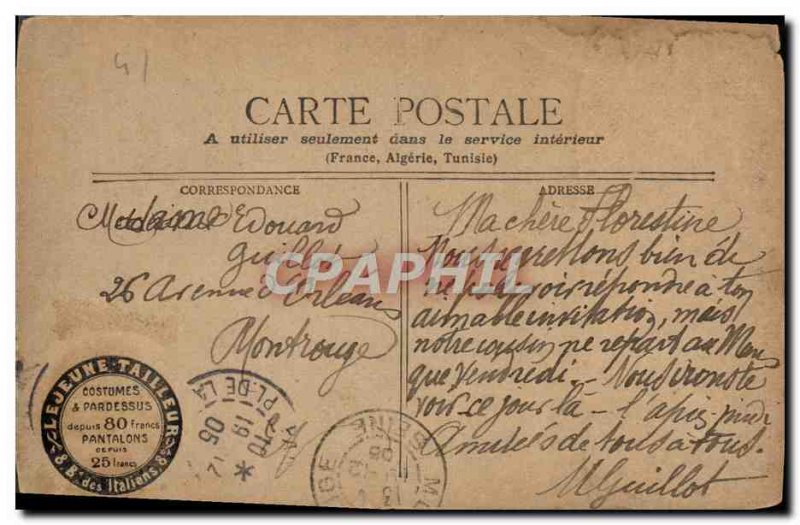 41
CARTE POSTALE
A utiliser seulement dans le service intérieur
(France, Algérie, Tunisie)
CORRESPONDANCE
Madame Edouard
Guillot
26 Avenue d'Orléans
Montrouge
ADRESSE
Ma chère Florestine
Nous regrettons bien de
ne pouvoir répondre à ton
aimable invitation, mais
notre cousin ne repart au Mans
que Vendredi. - Nous irons te
voir ce jour là - l'après midi
Amitiés de tous a tous.
M Guillot
CPAPHIL.com
LEJEUNE TAILLEUR
COSTUMES
& PARDESSUS
depuis 80 francs
PANTALONS
DEPUIS
25 francs
8 Bd des Italiens 8
PL. DE LA
19
05
SEINE